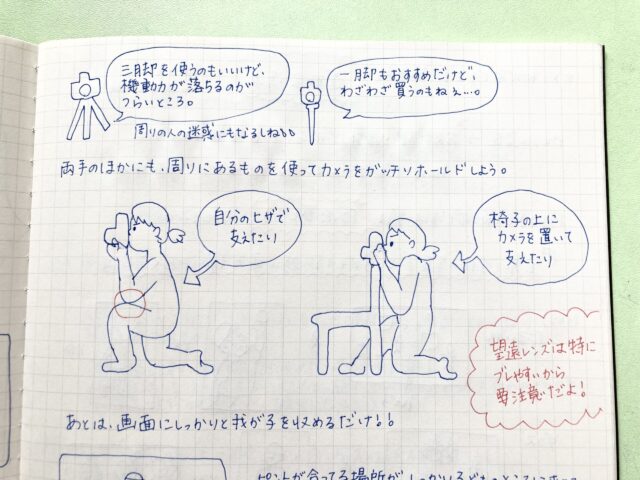 三脚を使うのもいいけど、
機動力が落ちるのが
つらいところ。
周りの人の迷惑にもなるしね。。
一脚もおすすめだけど、
わざわざ買うのもねぇ…。
両手のほかにも、周りにあるものを使ってカメラをガッチリホールドしよう。
自分のヒザで
支えたり
椅子の上に
カメラを置いて
支えたり
望遠レンズは特に
ブレやすいから
要注意だよ!
あとは、画面にしっかりと我が子を収めるだけ!!
ピントが合ってる場所が